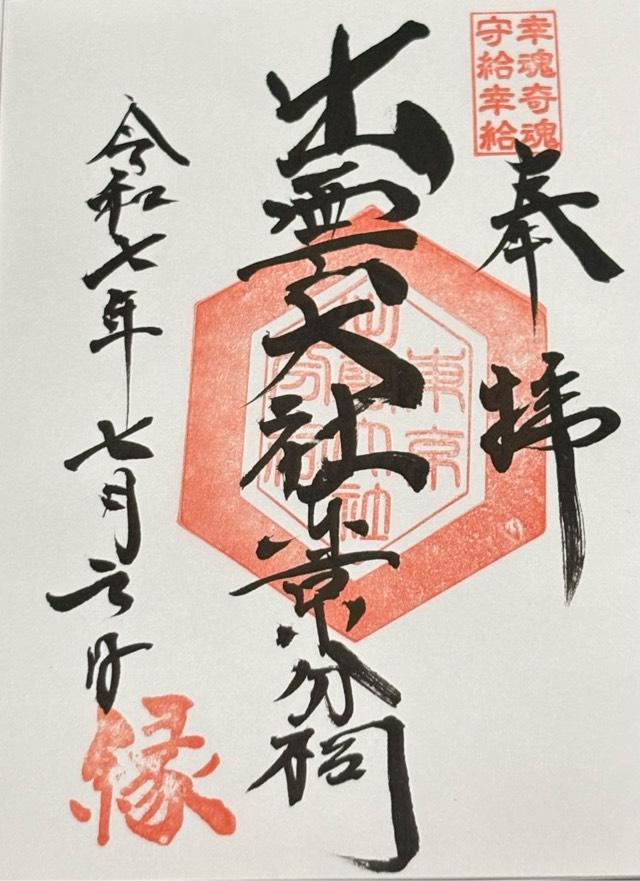 幸魂奇魂
守給幸給
奉拝
出雲大社東京分祠
東京
出雲大社
分祠
令和七年七月六日
縁